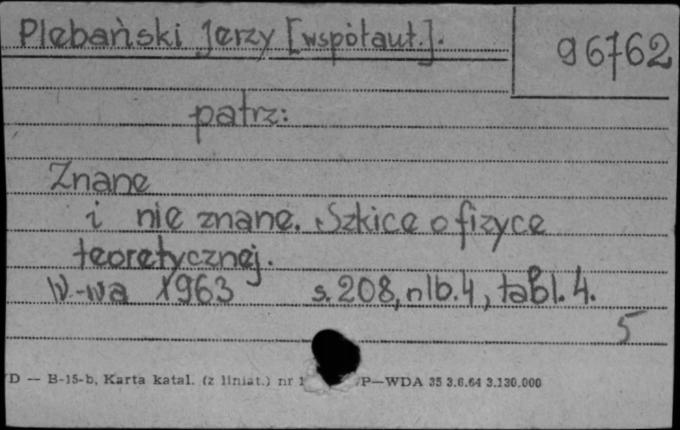 Plebański Jerzy [współaut.].
96762
patrz:
Znane
i nie znane. Szkice o fizyce
teoretycznej.
W-wa 1963 s. 208, nlb. 4, tabl. 4.
5
D — B-15-b, Karta katal. (z liniat.) nr 1 P—WDA 35 3.6.64 3.130.000